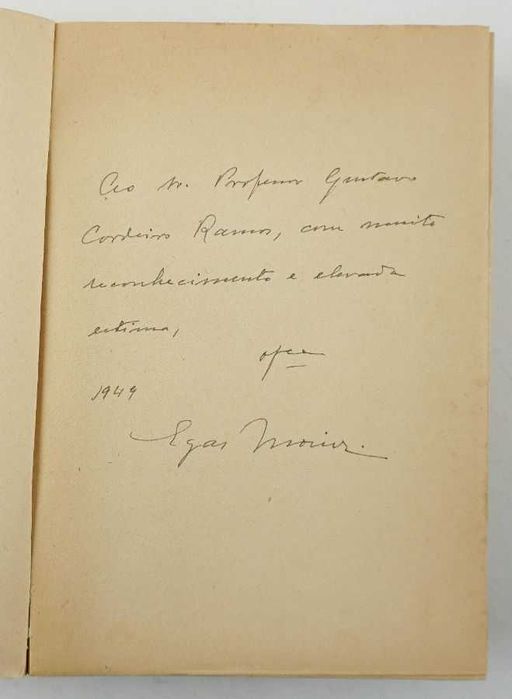 Ao Sr. Professor Gustavo
Cordeiro Ramos, com muito
reconhecimento e elevada
estima,
ofce
1949
Egas Moniz.